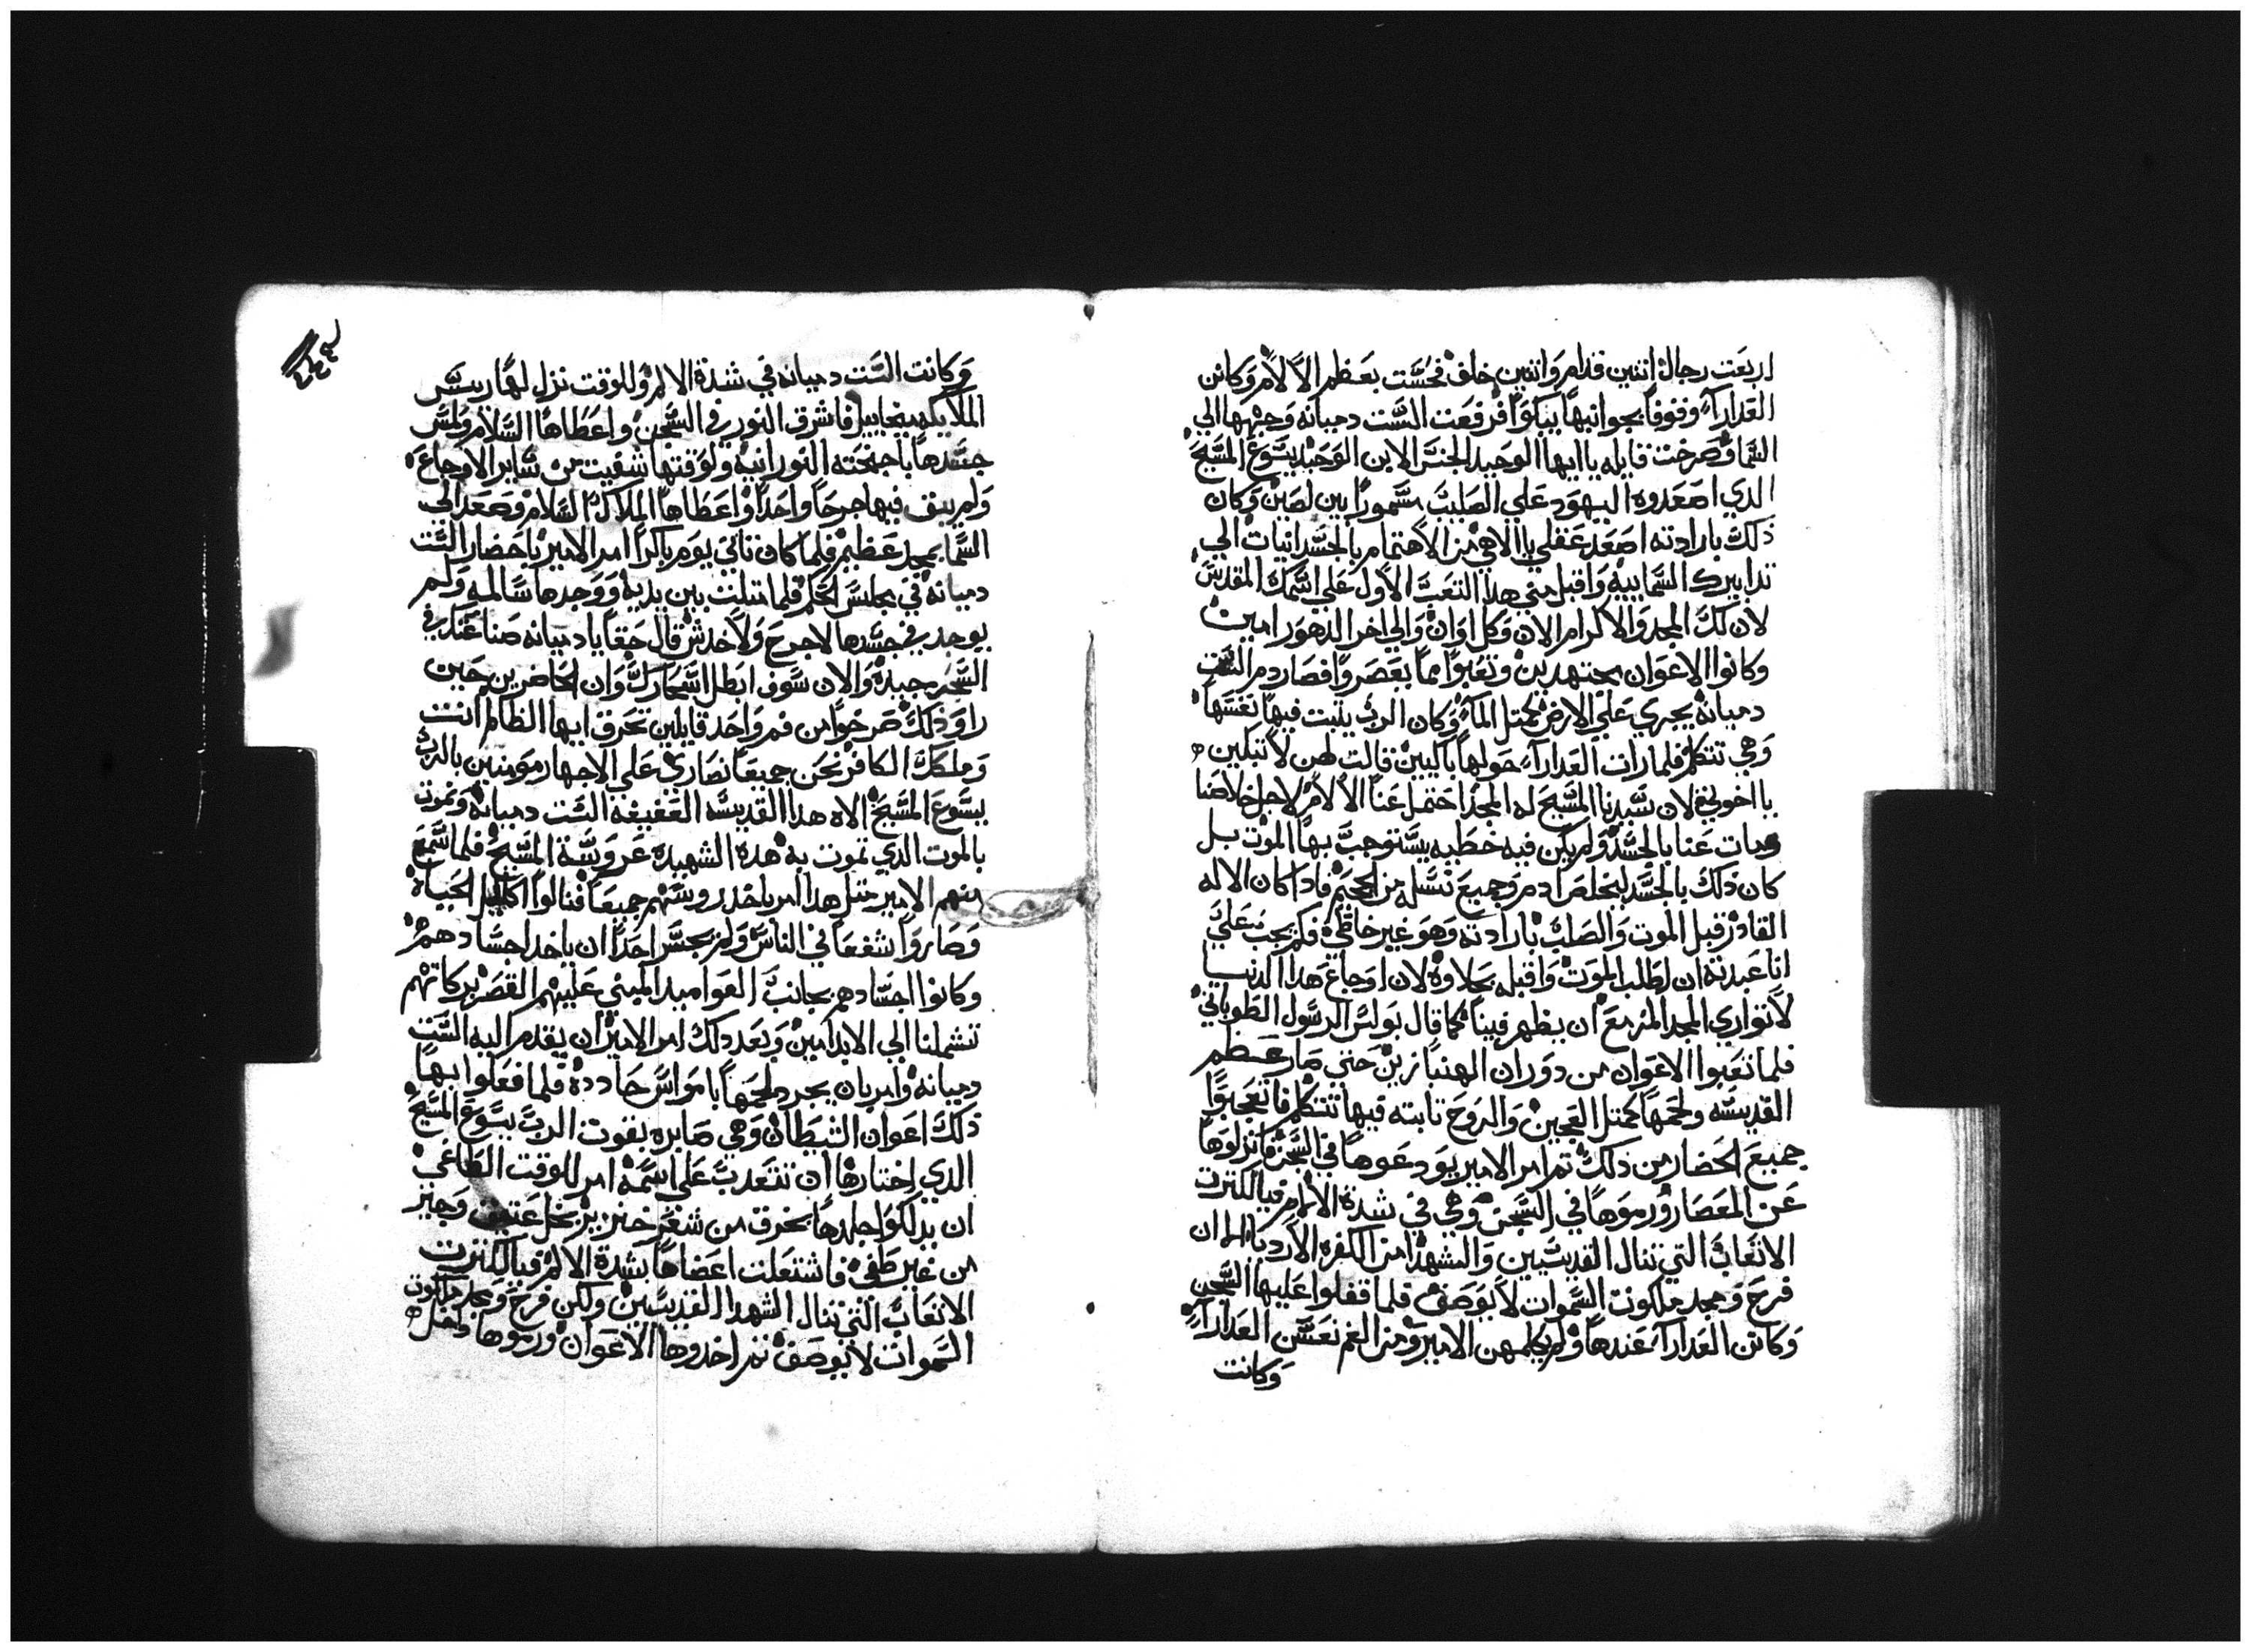 اربعت رجال اتنين قدام واتنين خلف فحست بعظم الالام وكانن
العدارآ وقوفا بجوانبها يبكوا فرفعت الست دميانه وجهها الي
السما وصرخت قايله يا ايها الوحيد الجنس الابن الوحيد يسوع المسيح
الدي اصعدوه اليهود علي الصليب مسمورا بين لصين وكان
ذلك بارادته اصعد عقلي يا الاهي من الاهتمام بالجسدانيات الي
تدابيرك السماييه واقبل مني هدا التعب الاول علي اسمك المقدس
لان لك المجد والاكرام الان وكل اوان والي اخر الدهور امين
وكانوا الاعوان مجتهدين وتعبوا مما بعصروا فصار دم الست
دميانه يجري علي الارض كمتل المآ وكان الرب يثبت فيها نفسها
وهي تتكلم فلما رات العدارآ حولها باكيين قالت لهن لا تبكين
يا اخوتي لان سيدنا المسيح له المجد احتمل عنا الالام لاجل خلاصنا
ومات عنا بالجسد ولم يكن فيه خطيه يستوجب بها الموت بل
كان ذلك بالجسد ليخلص ادم وجميع نسله من الجحيم فادا كان الاله
القادر قبل الموت والصلب بارادته وهو غير خاطي فكم يجب علي
انا عبدته ان اطلب الموت واقبله بحلاوه لان اوجاع هدا الدنيا
لا توازي المجد المزمع ان يظهر فينا كما قال بولس الرسول الطوباني
فلما تعبوا الاعوان من دوران الهنبازين حتي صار عظم
القديسه ولحمها كمتل العجين والروح تابته فيها تتكلم فاتعجبوا
جميع الحضار من ذلك تم امر الامير يودعوها في السجن فانزلوها
عن المعصار ورموها في السجن وهي في شدة الالام فيا لكترت
الاتعاب التي تنال القديسيين والشهدا من الكفره الاردياء الا ان
فرح ومجد ملكوت السموات لا يوصف فلما قفلوا عليها السجن
وكانن العدارآ عندها ولم يكلمهن الامير ومن الغم نعسن العدارآ
وكانت
وكانت الست دميانه في شدة الالم وللوقت نزل لها ريس
الملايكه ميخاييل فاشرق النور في السجن واعطاها السلام ولمس
جسدها باجنحته النورانيه ولوقتها شفيت من ساير الاوجاع
ولم يبق فيها جرحا واحدا واعطاها الملاك السلام وصعد الي
السما بمجد عظيم فلما كان تاني يوم باكرا امر الامير باحضار الست
دميانه في مجلس الحكم فلما متلت بين يديه ووجدها سالمه ولم
يوجد في جسدها لا جرح ولا خدش قال حقا يا دميانه صناعتك في
السحر جيده والان سوف ابطل اسحارك وان الحاضرين حين
راو ذلك صرخوا من فم واحد قايلين تحرق ايها الظالم انت
وملكك الكافر نحن جميعا نصاري علي الاجهار مومنين بالرب
يسوع المسيح الاه هدا القديسه العفيفه الست دميانه ونموت
بالموت الدي تموت به هده الشهيده عروسة المسيح فلما سمع
منهم الامير متل هدا امر باخد روسهم جميعا فنالوا اكاليل الحياه
وصاروا شفعا في الناس ولم يجسر احدا ان ياخد اجسادهم
وكانوا اجسادهم بجانب العواميد المبني عليهم القصر بركاتهم
تشملنا الي الابد امين وبعد دلك امر الامير ان يقدم اليه الست
دميانه وامر بان يجرد لحمها بامواس حادده فلما فعلوا بها
ذلك اعوان الشيطان وهي صابره بقوت الرب يسوع المسيح
الدي اختارها ان تتعدب علي اسمه امر للوقت الطاغي
ان يدلكوا جلدها بخرق من شعر خنزير بخل عتيق وجير
من غير طفي فاشتعلت اعضاها بشدة الالم فيا لكترت
الاتعاب التي تنال الشهدا القديسين ولكن فرح ومجد ملكوت
السموات لا يوصف تم اخدوها الاعوان ورموها داخل